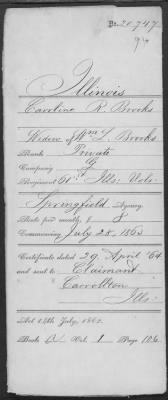 No. 20,747
Illinois
Caroline R. Brooks
Widow of Wm L. Brooks
Rank Private
Company G
Regiment 61st Ills: Vols:
Springfield Agency.
Rate per month, $ 8
Commencing July 28, 1863
Certificate dated 29 April '64
and sent to Claimant
Carrollton
Ills:
Act 14th July, 1862.
Book A Vol. 1 Page 186